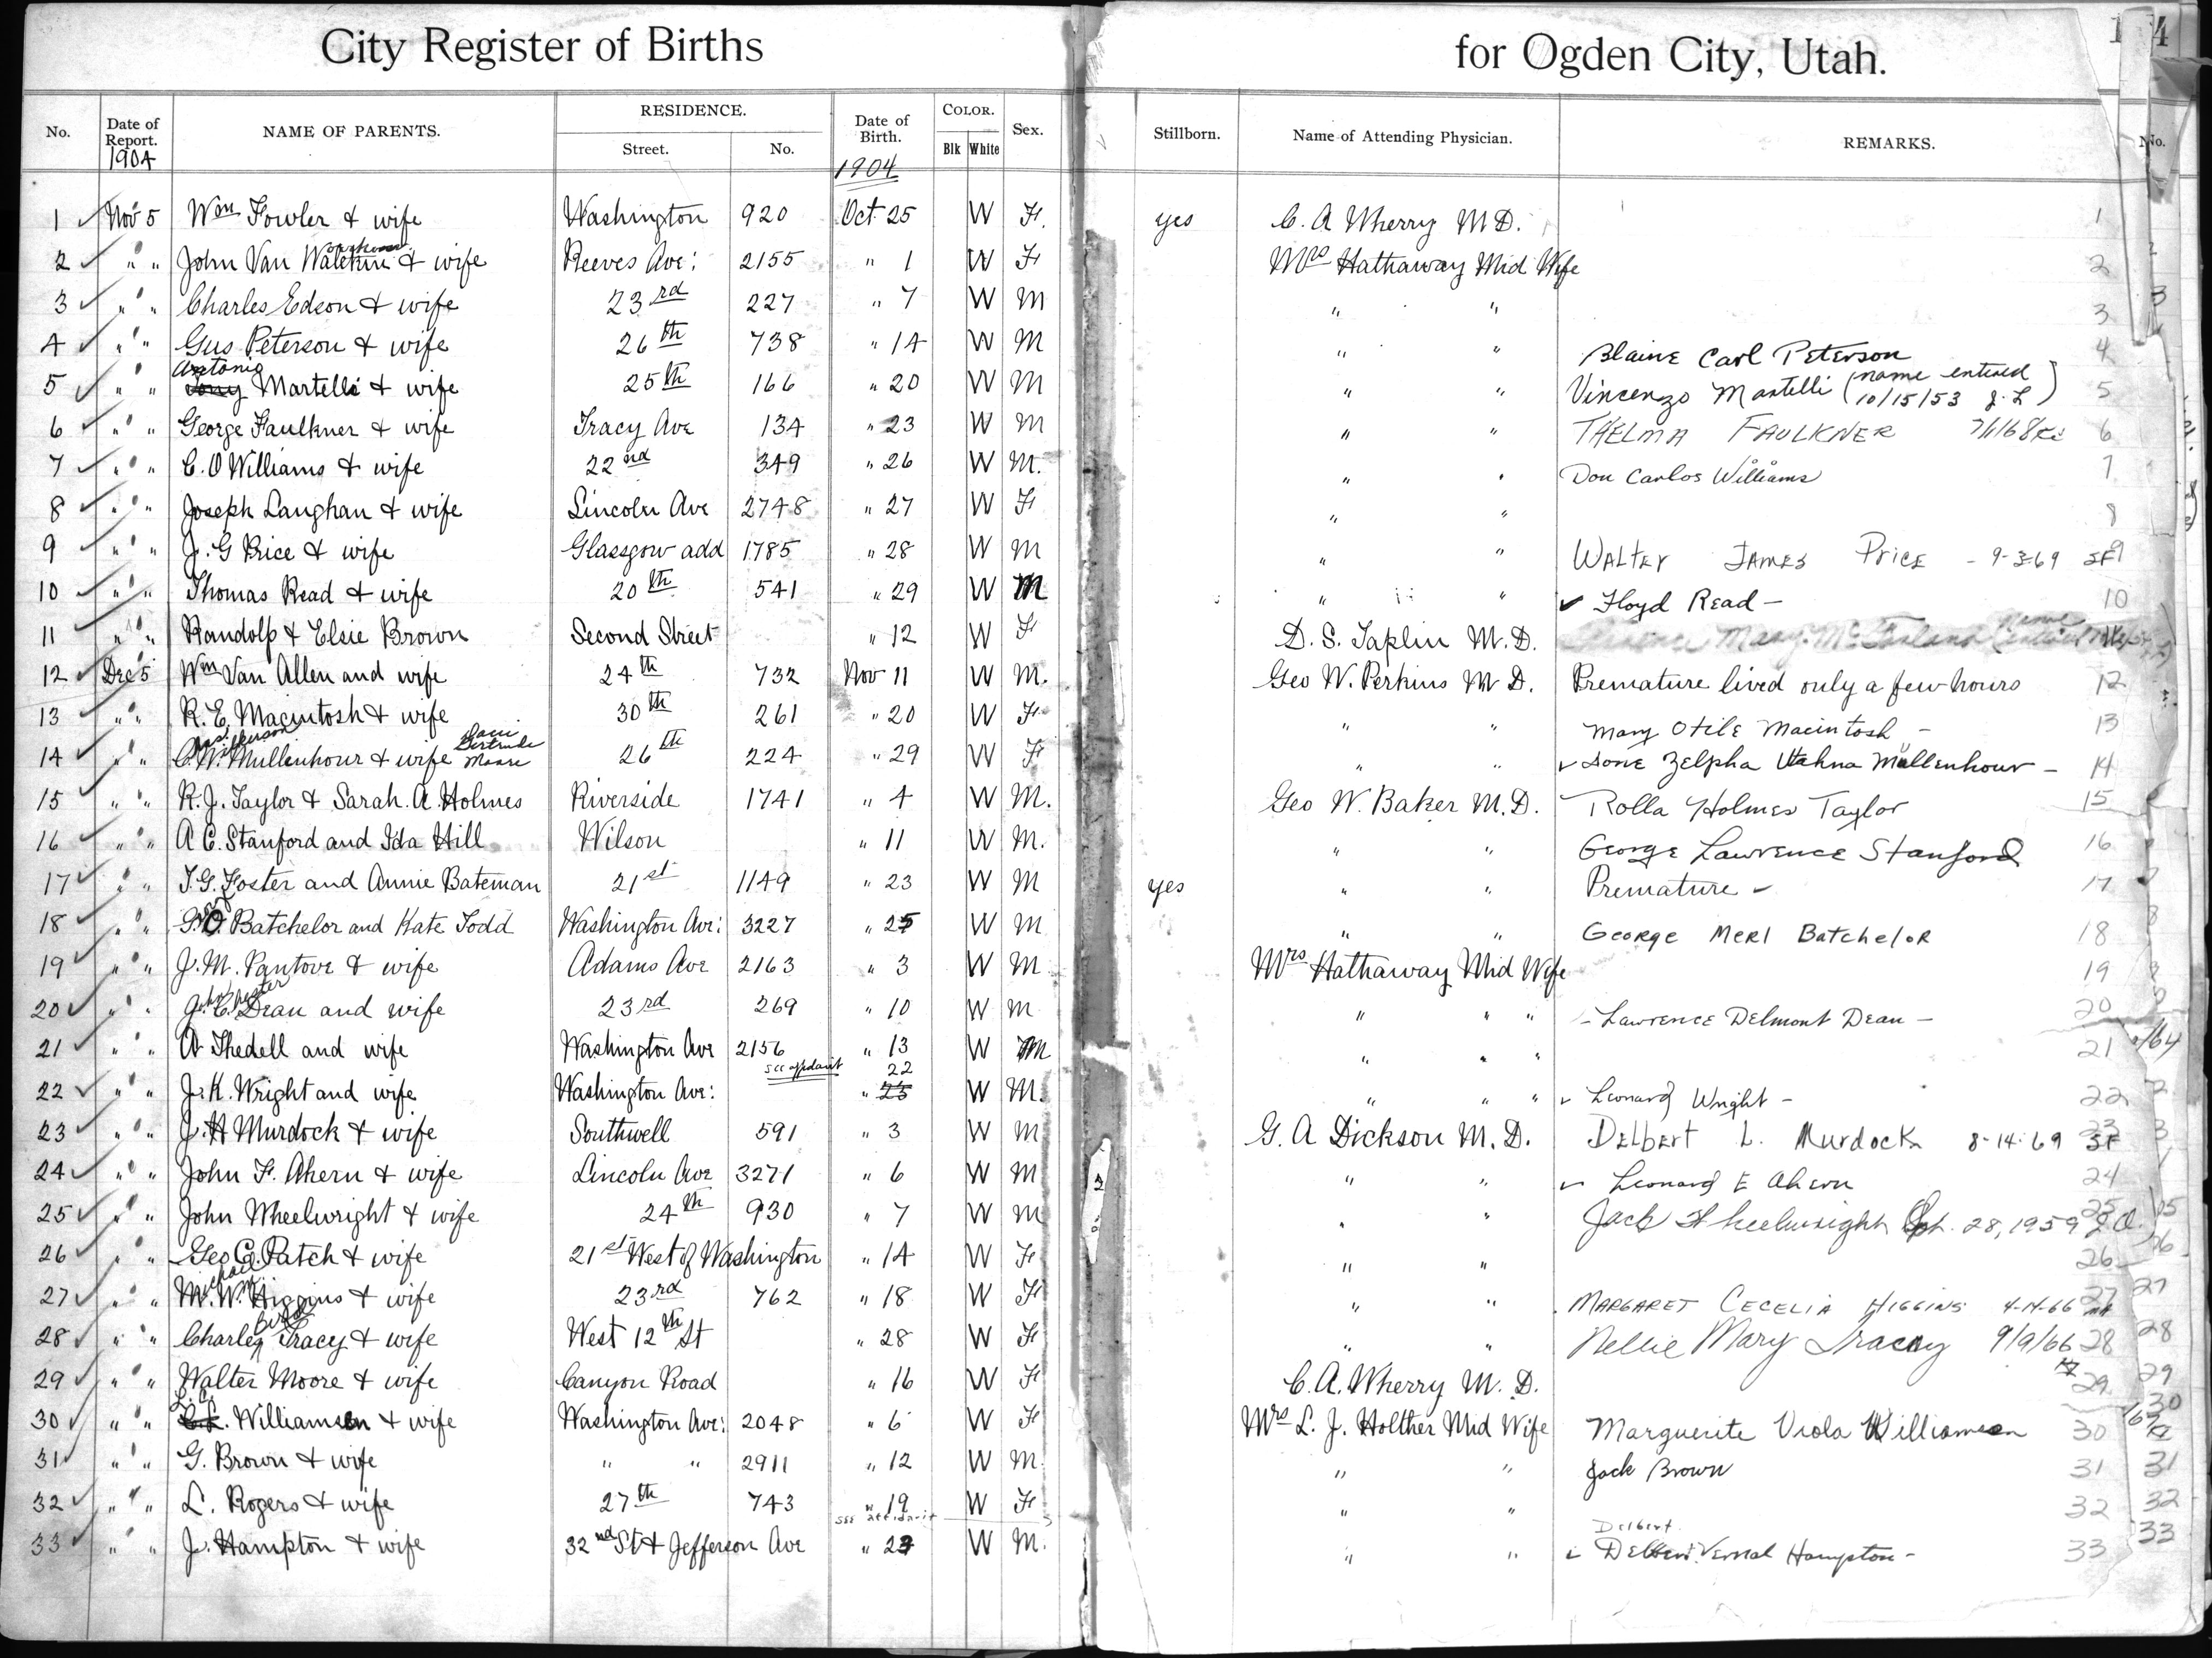 City Register of Births for Ogden City, Utah.
No. Date of Report. 1904 NAME OF PARENTS. RESIDENCE. Street. No. Date of Birth. 1904 COLOR. Blk White Sex. Stillborn. Name of Attending Physician. REMARKS. No.
1 Nov 5 Wm Fowler & wife Washington 920 Oct 25 W F. yes C. A Wherry M D. 1
2 " " John Van & wife Reeves Ave: 2155 " 1 W F Mrs Hathaway Mid Wife 2
3 " " Charles Edson & wife 23rd 227 " 7 W M " " 3
4 " " Gus Peterson & wife 26th 738 " 14 W M " " Blaine Carl Peterson 4
5 " " Antonio Martelli & wife 25th 166 " 20 W M " " Vincenzo Martelli (name entered 10/15/53 J. L) 5
6 " " George Faulkner & wife Tracy Ave 134 " 23 W M " " THELMA FAULKNER 6
7 " " C. O Williams & wife 22nd 349 " 26 W M. " " Don Carlos Williams 7
8 " " Joseph Langhan & wife Lincoln Ave 2748 " 27 W F " " 8
9 " " J. G Price & wife Glassgow add 1785 " 28 W M " " WALTER JAMES PRICE - 9-3-69 SF 9
10 " " Thomas Read & wife 20th 541 " 29 W M " " Floyd Read - 10
11 " " Randolp & Elsie Brown Second Street " 12 W F D. S. Taplin M. D.
12 Dec 5 Wm Van Allen and wife 24th 732 Nov 11 W M. Geo W. Perkins M D. Premature lived only a few hours 12
13 " " R. E. Macintosh & wife 30th 261 " 20 W F " " Mary Otile Macintosh - 13
14 " " C. W. Mullenhour & wife Gertrude Moore 26th 224 " 29 W F " " Ione Zelpha Utahna Mullenhour - 14
15 " " R. J. Taylor & Sarah. A. Holmes Riverside 1741 " 4 W M. Geo W. Baker M. D. Rolla Holmes Taylor 15
16 " " A C. Stanford and Ida Hill Wilson " 11 W M. " " George Lawrence Stanford 16
17 " " T. G. Foster and Annie Bateman 21st 1149 " 23 W M yes " " Premature - 17
18 " " G. O. Batchelor and Kate Todd Washington Ave: 3227 " 25 W M " " George Merl Batchelor 18
19 " " J. M. Pantove & wife Adams Ave 2163 " 3 W M. Mrs Hathaway Mid Wife 19
20 " " J. C. Dean and wife 23rd 269 " 10 W M " " " - Lawrence Delmont Dean - 20
21 " " A Thedell and wife Washington Ave 2156 " 13 W M " " " 21
22 " " J. K. Wright and wife Washington Ave: see affidavit " 22 25 W M. " " " Leonard Wright - 22
23 " " J. H Murdock & wife Southwell 591 " 3 W M G. A Dickson M. D. DELBERT L. Murdock 8-14-69 SF 23
24 " " John F. Ahern & wife Lincoln Ave 3271 " 6 W M " " Leonard E Ahern 24
25 " " John Wheelwright & wife 24th 930 " 7 W M " " Jack Wheelwright 28, 1959 25
26 " " Geo G. Patch & wife 21st West of Washington " 14 W F " " 26
27 " " M. W. Higgins & wife 23rd 762 " 18 W F " " MARGARET CECELIA HIGGINS 4-14-66 27
28 " " Charley Bird Tracy & wife West 12th St " 28 W F " " Nellie Mary Tracy 9/9/66 28
29 " " Walter Moore & wife Canyon Road " 16 W F C. A. Wherry M. D. 29
30 " " L. C. Williamson & wife Washington Ave: 2048 " 6 W F Mrs L. J. Holther Mid Wife Marguerite Viola Williamson 30
31 " " G. Brown & wife " " 2911 " 12 W M. " " Jack Brown 31
32 " " L. Rogers & wife 27th 743 " 19 W F " " 32
see affidavit
33 " " J. Hampton & wife 32nd St & Jefferson Ave " 23 W M. " " Delbert Vernal Hampton - 33